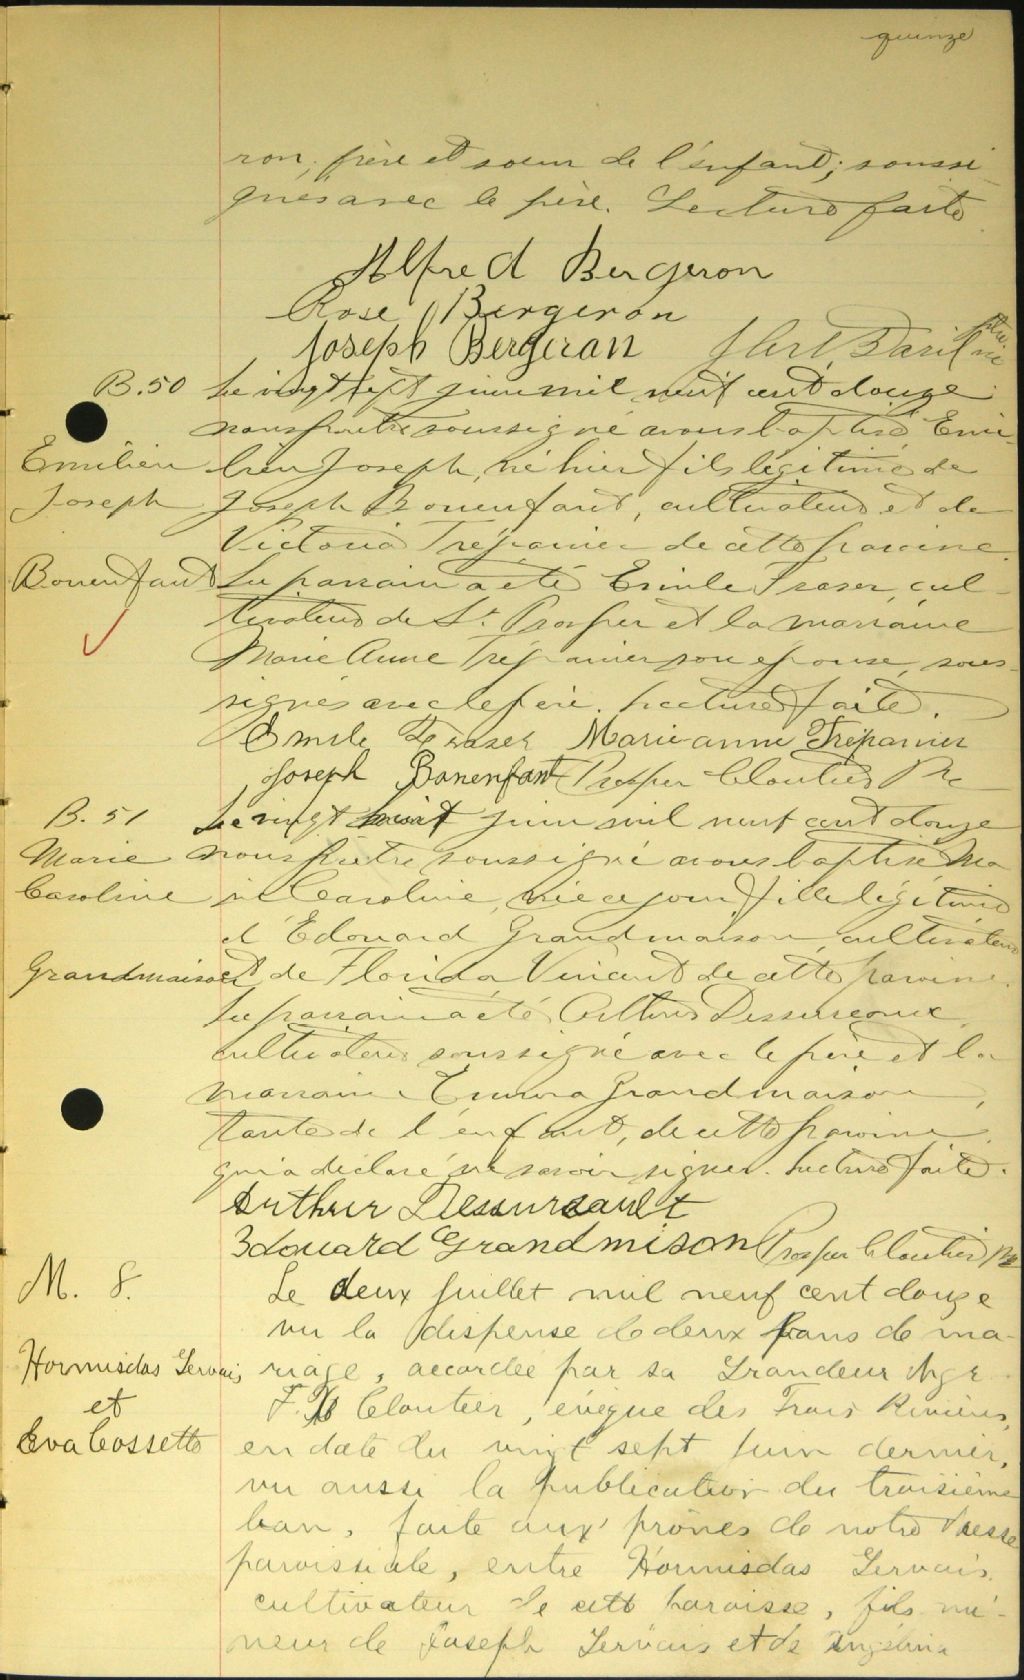 quinze
ron, frère et soeur de l'enfant; soussi-
gnés avec le père. Lecture faite
Alfred Bergeron
Rose Bergeron
Joseph Bergeran
B.50 Le vingt sept juin mil neuf cent douze
nous prêtre soussigné avons baptisé Emi-
Emilien lien Joseph, né hier fils légitime de
Joseph Joseph Bonenfant, cultivateur et de
Victoria Trépanier de cette paroisse.
Bonenfant Le parrain a été Emile Fraser, cul-
tivateur de St Prosper et la marraine
Marie Anne Trépanier son épouse, sous-
signés avec le père. Lecture faite.
Emile Fraser Marie-anne Trépanier
Joseph Bonenfant Prosper Cloutier Ptre
B. 51 Le vingt huit juin mil neuf cent douze
Marie nous prêtre soussigné avons baptisé Ma
Caroline rie Caroline, née ce jour, fille légitime
d'Edouard Grandmaison, cultivateur
Grandmaison et de Florida Vincent de cette paroisse.
Le parrain a été Arthur Dessureaux
cultivateur soussigné avec le père et la
marraine Emma Grandmaison,
tante de l'enfant, de cette paroisse
qui a déclaré ne savoir signer. Lecture faite.
Arthur Dessureault
Edouard Grandmison Prosper Cloutier Ptre
M. 8. Le deux juillet mil neuf cent douze
vu la dispense de deux bans de ma-
Hormisdas Gervais riage, accordée par sa Grandeur Mgr
et F. X Cloutier, évêque des Trois Rivières,
Eva Cossette en date du vingt sept juin dernier,
vu aussi la publication du troisième
ban, faite aux prônes de notre Messe
paroissiale, entre Hormisdas Gervais
cultivateur de cette paroisse, fils mi-
neur de Joseph Gervais et de Angélina